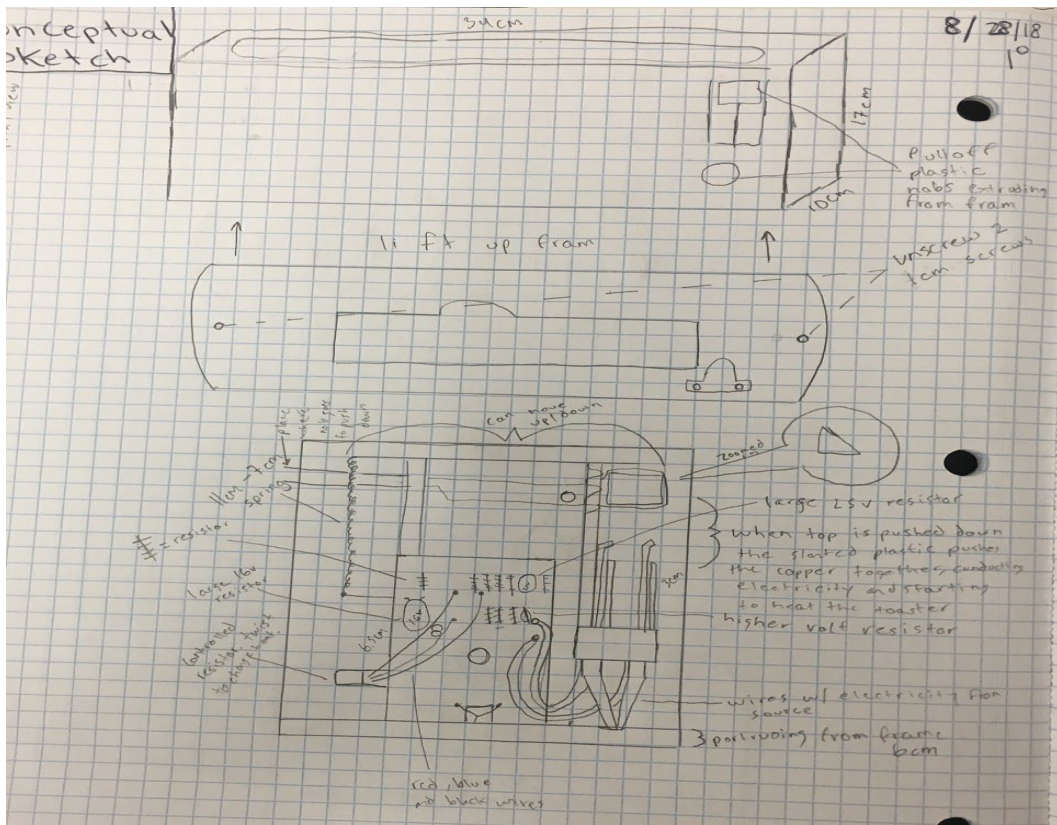 onceptual
sketch
34cm
8/28/18
1°
17cm
10cm
Pull off
plastic
nobs extruding
from fram
lift up fram
unscrew 2
1cm screws
place
where
to push
down
can move
up/down
zoomed
11cm-7cm
spring
= resistor
large 16v
resistor
controlled
resistor, twist
to change
16v
6.5cm
3cm
large 25v resistor
when top is pushed down
the slanted plastic pushes
the copper together, conducting
electricity and starting
to heat the toaster
higher volt resistor
wires w/ electricity from
source
portruding from frame
6cm
red, blue
and black wires